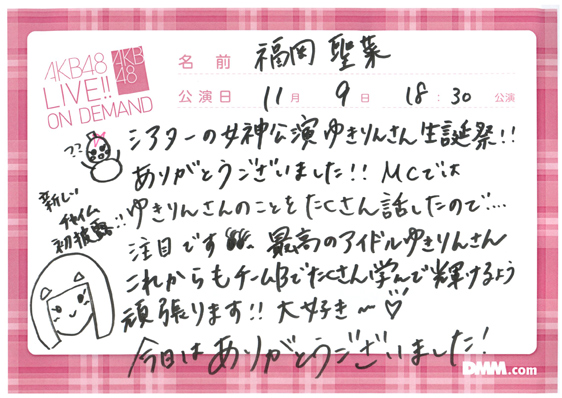 AKB48
LIVE!!
ON DEMAND
AKB
48
名前 福岡 聖菜
公演日 11月 9日 18:30 公演
シアターの女神公演 ゆきりんさん生誕祭!!
ありがとうございました!! MCでは
ゆきりんさんのことをたくさん話したので…
注目です 最高のアイドルゆきりんさん
これからもチームBでたくさん学んで輝けるよう
頑張ります!! 大好き〜♡
今日はありがとうございました!
??
新しい
チャイム
初披露!!
DMM.com